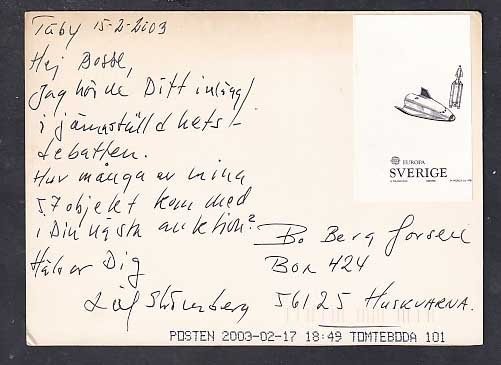 Täby 15-2-2003
Hej Bosse,
Jag hörde Ditt inlägg
i jämställdhets-
debatten.
Hur många av mina
57 objekt kom med
i Din nästa auktion?
Hälsar Dig
Strömberg
EUROPA
SVERIGE
Bo Berg
Box 424
56125 HUSKVARNA.
POSTEN 2003-02-17 18:49 TOMTEBODA 101